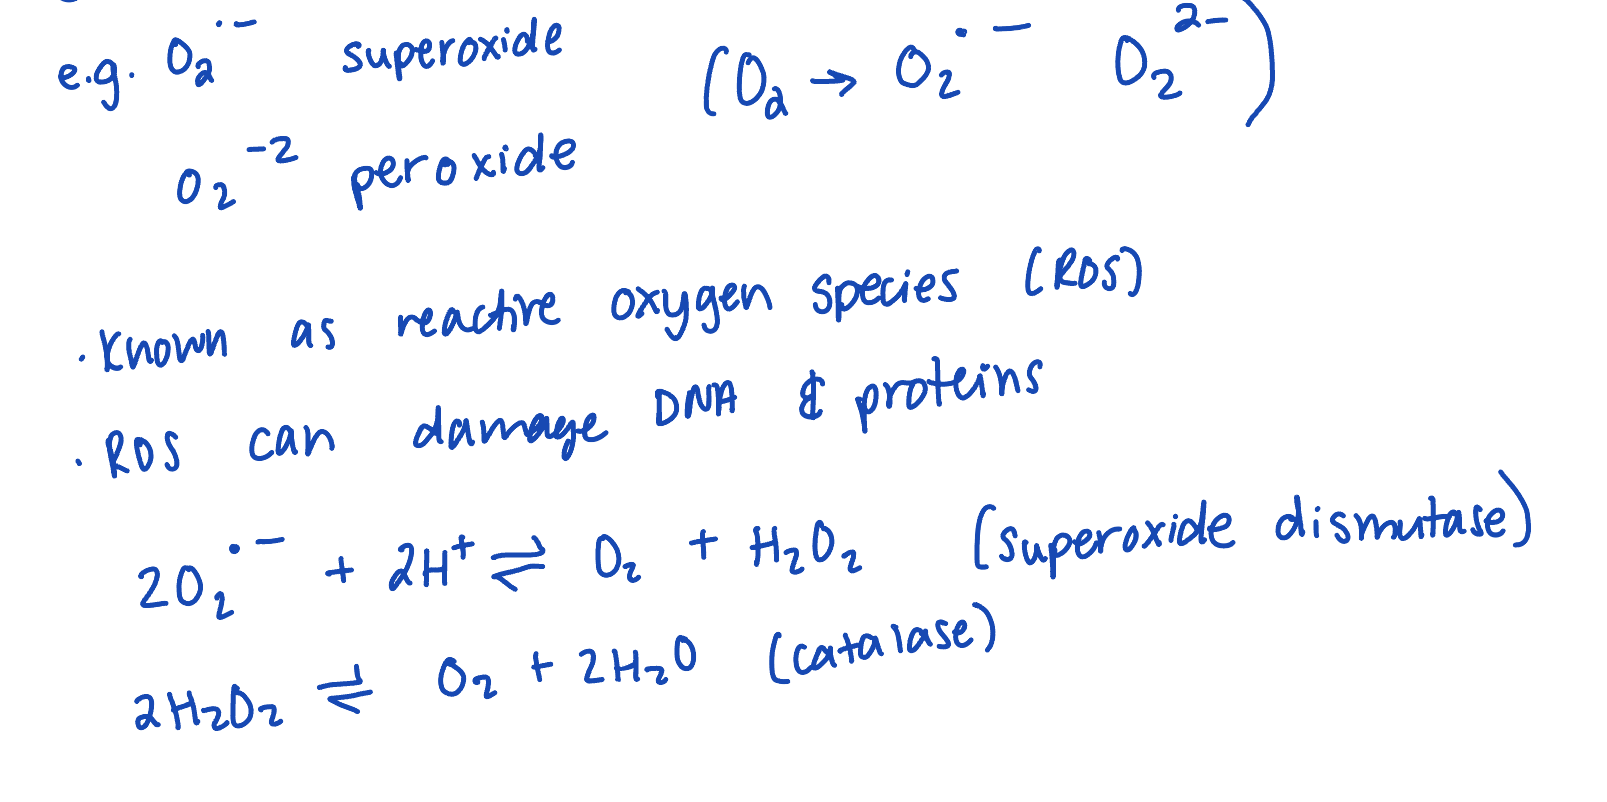 e.g. O₂˙⁻ superoxide (O₂ → O₂˙⁻ O₂²⁻)
O₂⁻² peroxide
· Known as reactive oxygen species (ROS)
· ROS can damage DNA & proteins
2O₂˙⁻ + 2H⁺ ⇌ O₂ + H₂O₂ (superoxide dismutase)
2H₂O₂ ⇌ O₂ + 2H₂O (catalase)